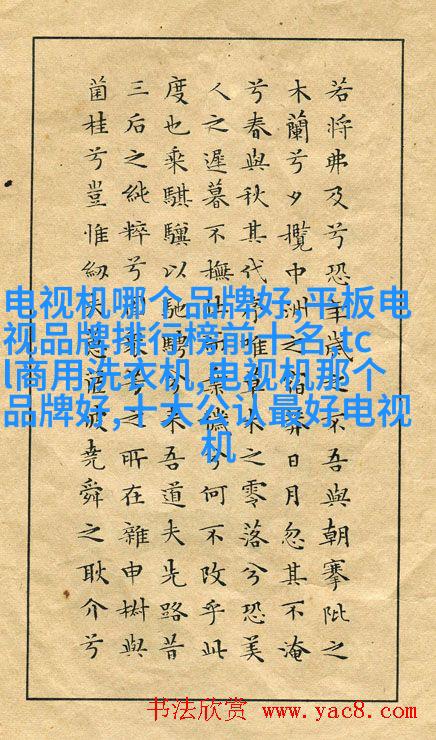 若將弗及兮恐年歲之不吾與朝搴阰之
木蘭兮夕攬中洲之宿莽日月忽其不淹
兮春與秋其代序唯草木之零落兮恐美
人之遲暮不撫棄穢兮何不改乎此
度也乘騏驥以馳騁兮吾道夫先路昔
三后之純粹兮之所在雜申椒與
菌桂兮豈惟紉夫彼堯舜之耿介兮
电视机哪个品牌好,平板电
视品牌排行榜前十名,tc
l商用洗衣机,电视机那个
品牌好,十大公认最好电视
机
书法欣赏 www.yac8.com